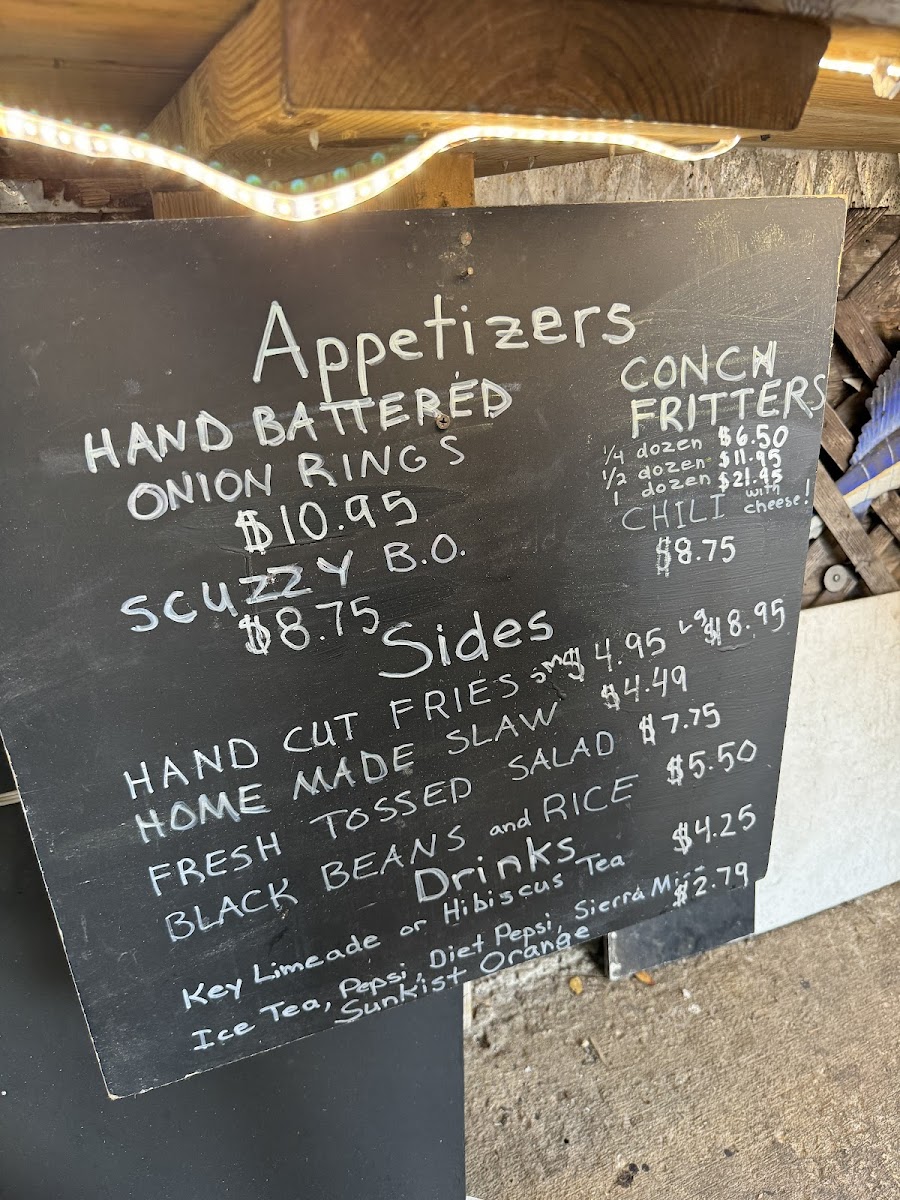 Appetizers
HAND BATTERED
ONION RINGS
$10.95
SCUZZY B.O.
$8.75
CONCH
FRITTERS
1/4 dozen $6.50
1/2 dozen $11.95
1 dozen $21.95
CHILI with cheese!
$8.75
Sides
HAND CUT FRIES sm $4.95 Lg $8.95
HOME MADE SLAW $4.49
FRESH TOSSED SALAD $7.75
BLACK BEANS and RICE $5.50
Drinks
Key Limeade or Hibiscus Tea $4.25
Ice Tea, Pepsi, Diet Pepsi, Sierra Mist $2.79
Sunkist Orange